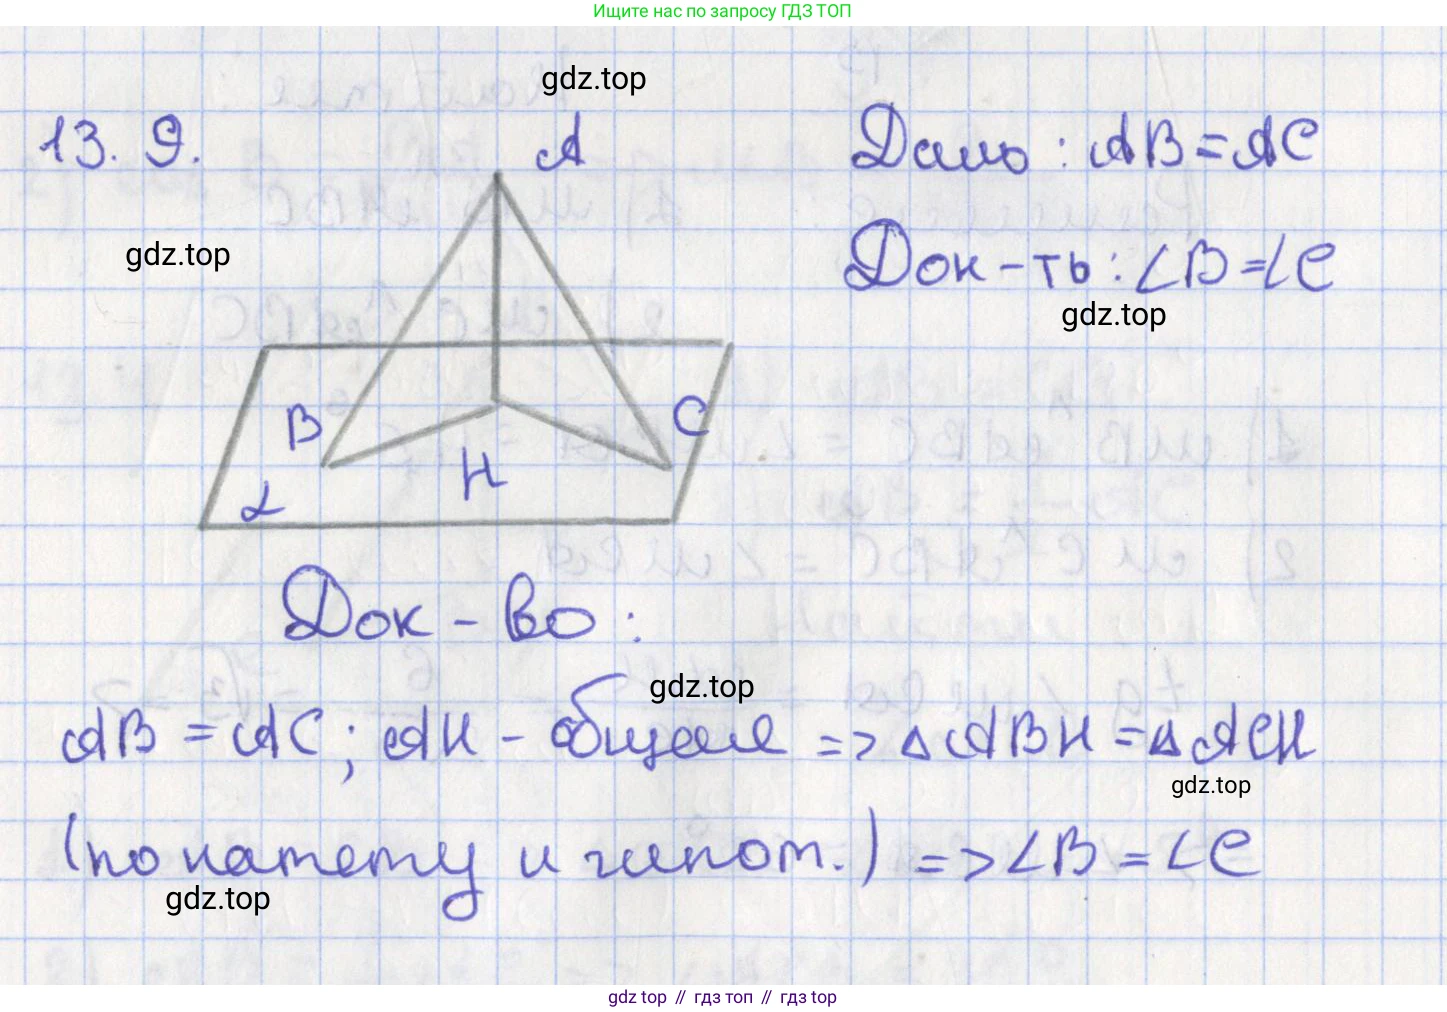 Ищите нас по запросу ГДЗ ТОП
gdz.top
13.9.
A
Дано: AB=AC
gdz.top
Док-ть: ∠B=∠C
gdz.top
B
C
H
α
Док-во:
gdz.top
AB = AC; AH - общая => △ABH = △ACH
gdz.top
(по катету и гипот.) => ∠B = ∠C
gdz.top
gdz top // гдз топ // гдз top